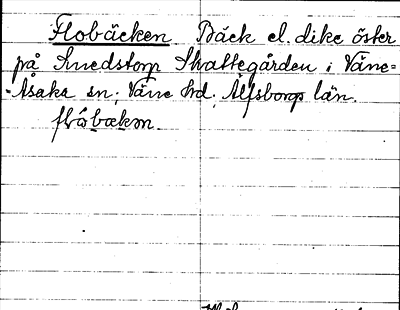 Flobäcken Bäck el. dike öster
på Smedstorp Skattegården i Väne-
-Åsaka sn; Väne hd, Älfsborgs län.